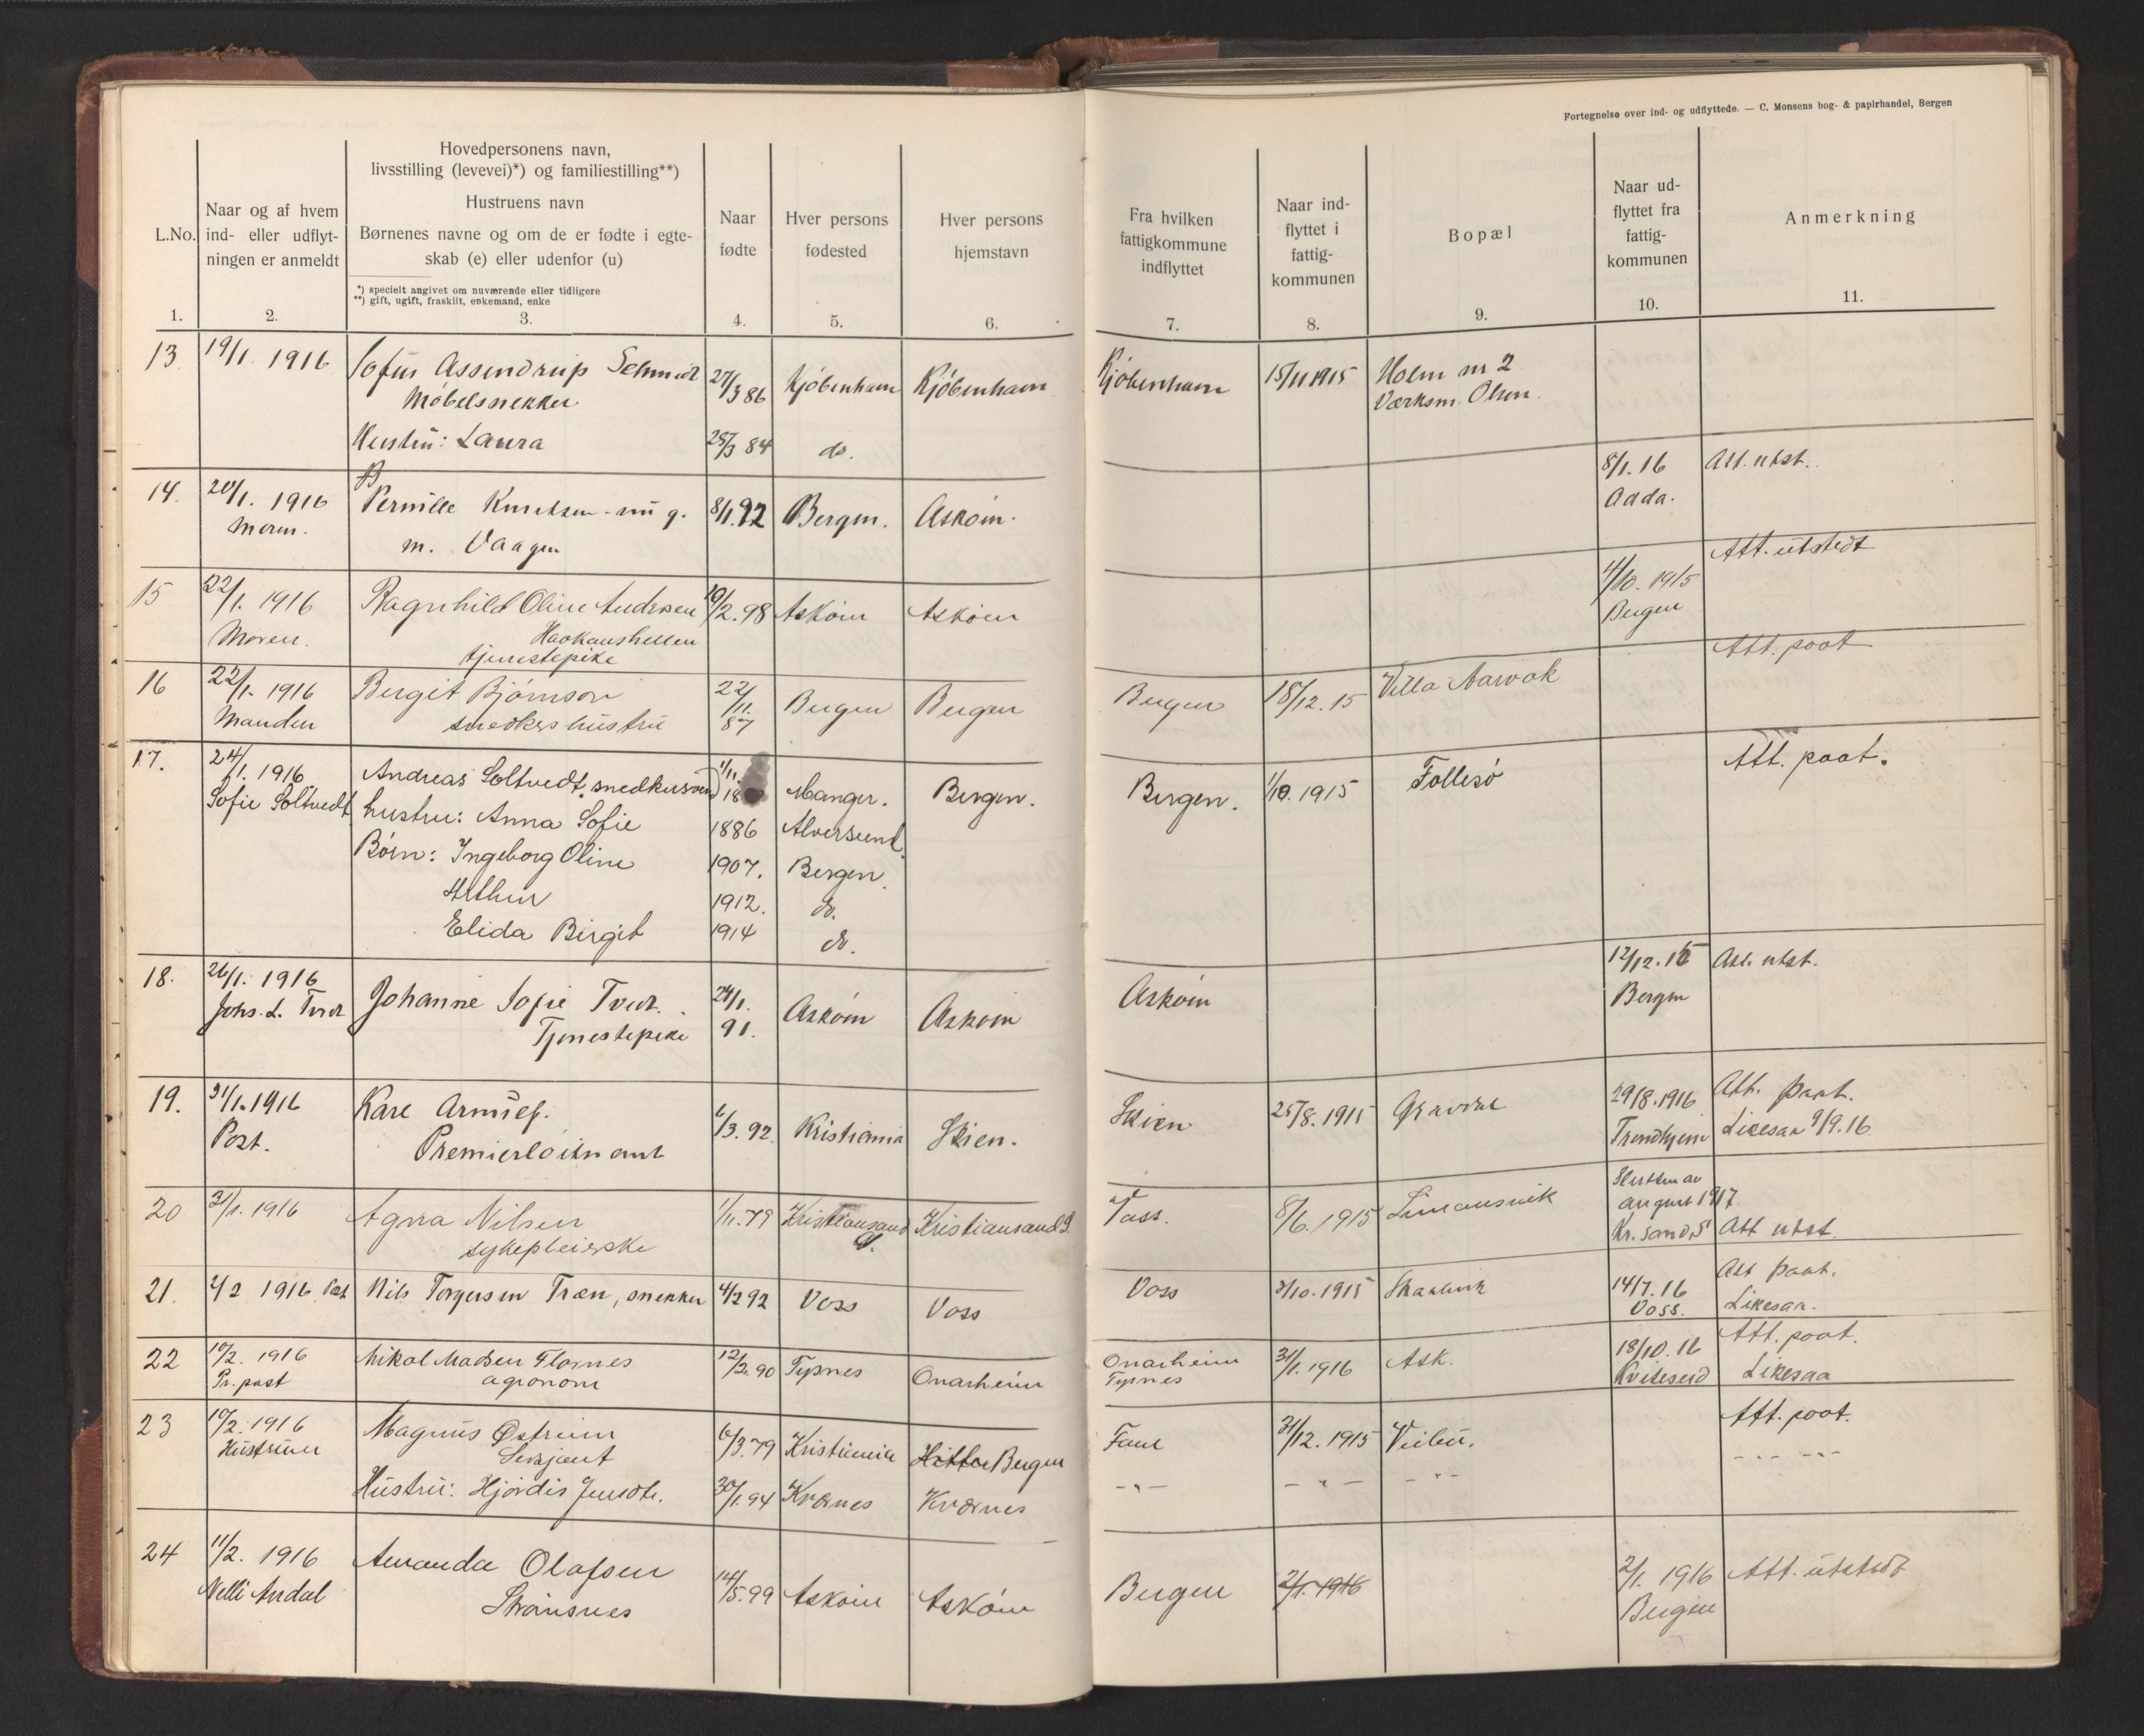 Fortegnelse over ind- og udflyttede. — C. Monsens bog- & papirhandel, Bergen
L.No.
1.
Naar og af hvem
ind- eller udflyt-
ningen er anmeldt
2.
Hovedpersonens navn,
livsstilling (levevei)*) og familiestilling**)
Hustruens navn
Børnenes navne og om de er fødte i egte-
skab (e) eller udenfor (u)
*) specielt angivet om nuværende eller tidligere
**) gift, ugift, fraskilt, enkemand, enke
3.
Naar
fødte
4.
Hver persons
fødested
5.
Hver persons
hjemstavn
6.
Fra hvilken
fattigkommune
indflyttet
7.
Naar ind-
flyttet i
fattig-
kommunen
8.
Bopæl
9.
Naar ud-
flyttet fra
fattig-
kommunen
10.
Anmerkning
11.
13 19/1. 1916 Sofus Assendrup Schmidt 27/3 86 Kjöbenham Kjöbenham Kjöbenham 15/11 1915 Holm nr 2
Møbelsnekker Værksm. Olsen.
Hustru: Laura 28/3 84 do.
14. 20/1. 1916 Pernille Knudsen - nu g. 8/1.92 Bergen. Asköin. 8/1.16 Att. utst.
Moren. m. Vaagen Odda.
15 22/1. 1916 Ragnhild Oline Andersen 10/2.98 Asköin Asköin 4/10. 1915 Att. utstedt
Moren. Haakanshellen Bergen
tjenestepike
16 22/1. 1916 Bergit Bjórnson 22/11. 87 Bergen Bergen Bergen 18/12.15 Villa Aarvak Att. paat
Manden snedkers hustru
17. 24/1. 1916 Andreas Soltvedt, snedkersvend 1/11. 18 Manger. Bergen. Bergen. 1/10. 1915 Follesø Att. paat.
Sofie Soltvedt hustru: Anna Sofie 1886 Alversund.
Börn: Ingeborg Oline 1907. Bergen.
Arthur 1912. do.
Elida Birgit 1914 do.
18. 26/1. 1916 Johanne Sofie Tveit. 24/1. 91. Asköin Asköin Asköin 12/12.15 Att. utst.
Johs. L. Tveit Tjenestepike Bergen
19. 31/1.1916 Kare Arnulf. 6/3.92. Kristiania Skien. Skien 25/8.1915 Gravdal 29/8.1916 Att. paat.
Post. Premierløitnant Trondhjem Likesaa 9/9.16
20 31/1. 1916 Agna Nilsen 1/11.79 Kristiansand S. Kristiansand S. Vass. 8/6. 1915 Slutten av
sykepleierske august 1917
Kr.sand S Att utst.
21. 2/2 1916 Post Nils Torgersen Træn, snekker 4/2 92 Voss Voss Voss 3/10.1915 14/7.16 Att paat.
Voss. Likesaa.
22 10/2. 1916 Nikol Madsen Flornes 12/2.90 Tysnes Onarheim Onarheim 31/1.1916 Ask. 18/10.16 Att. paat.
Pr. post agronom Tysnes Kviteseid Likesaa
23 10/2. 1916 Magnus Østreim 6/3.79 Kristiania Hitter Bergen Fane 31/12. 1915 Att. paat.
Hustruen Serjant
Hustru: Hjördis Jensdtr. 30/1.94 Kværnes Kværnes - " - - " - - " - - " -
24 11/2. 1916 Amanda Olafsen 14/5.99 Asköin Asköin Bergen 2/1.1916 2/1. 1916 Att. utstedt
Nelli Andal Strömsnes Bergen